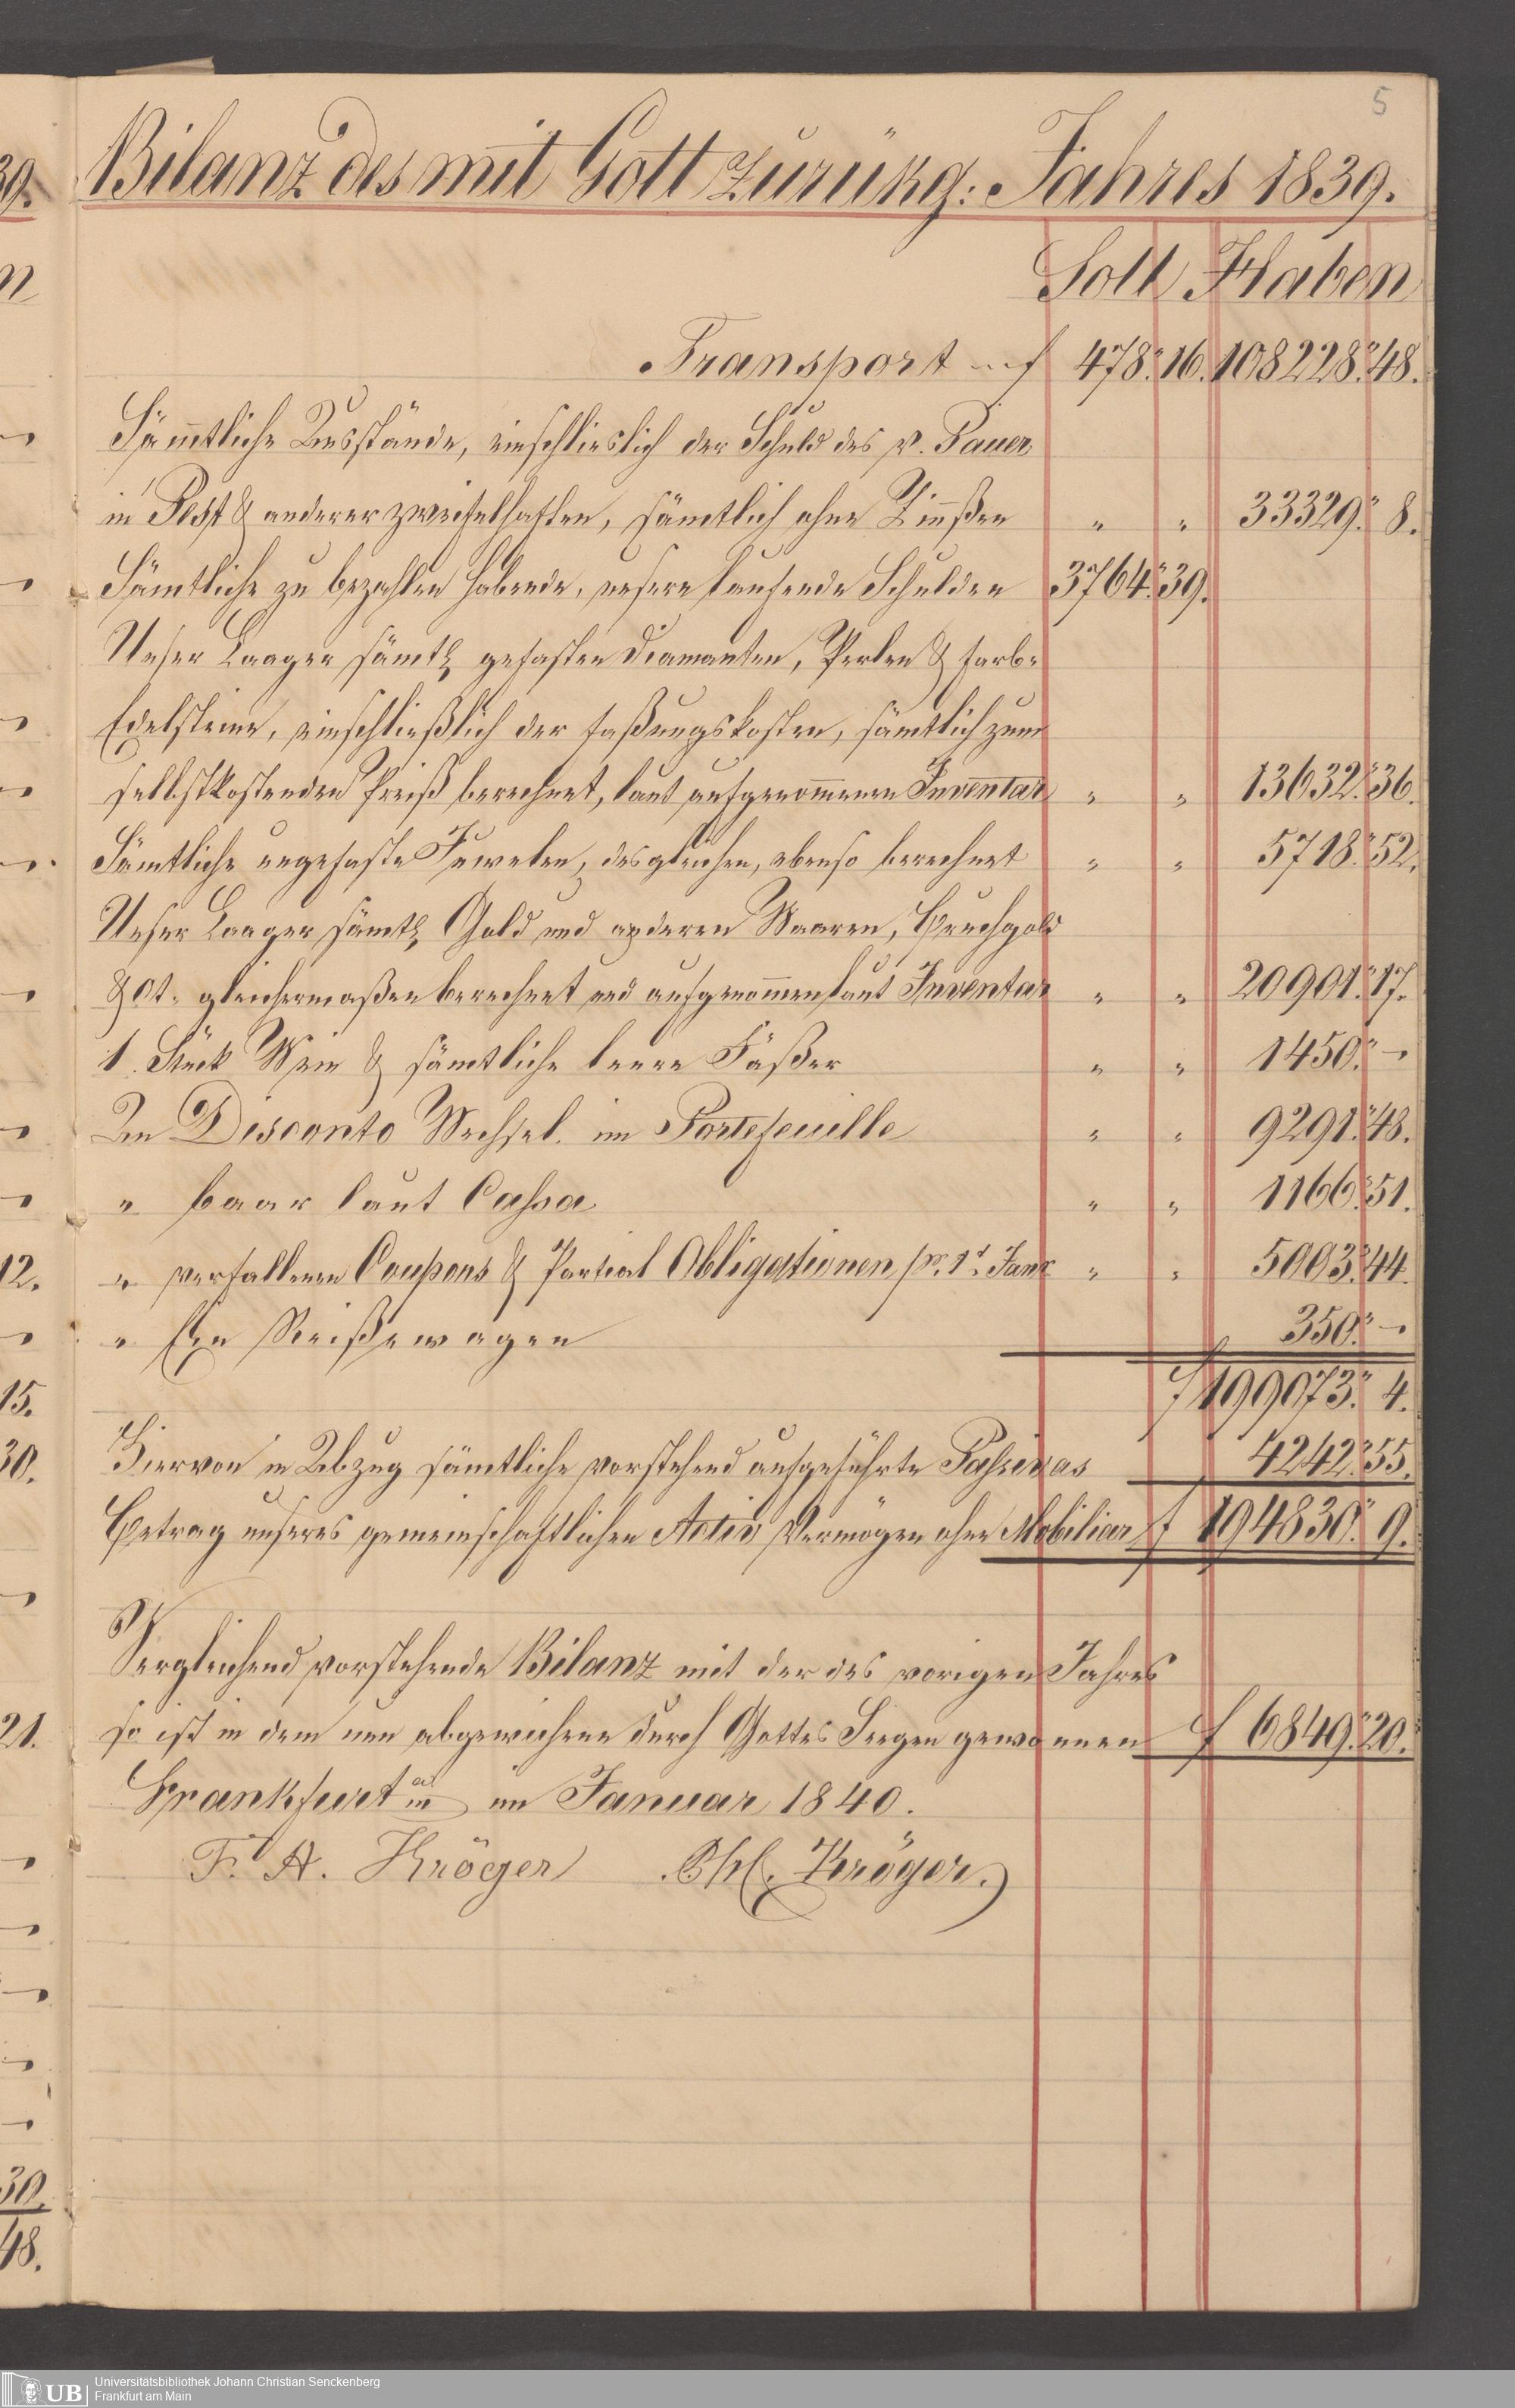 5
Bilanz des mit Gott zurükg: Jahres 1839.
Soll Haben
Transport f 478. 16. 108228. 48.
Sämmtliche Ausstände, einschlieslich der Schuld des v. Pauer
in Pest & anderer zweifelhaften, sämtlich ohne Zinnßen " " 33329. 8.
Sämtliche zu bezahlen habende, unsere laufende Schulden 3764. 39.
Unser Laager sämtl. gefasten Diamanten, Perlen & farb:
Edelsteine, einschließlich der Faßungskosten, sämtlich zum
selbstkostenden Preiß berechnet, laut aufgenommenen Inventar " " 13632. 36.
Sämtliche ungefaste Juwelen, desgleichen, ebenso berechnet " " 5718. 52.
Unser Laager sämtl. Gold und anderen Waaren, Bruchgold
& Ct. gleichermaßen berechnet und aufgenommen laut Inventar " " 20901. 17.
1. Stück Wein & sämtliche leere Fäßer " " 1450. –
An Disconto Wechsel im Portefeuille " " 9291. 48.
" baar laut Cassa " " 1166. 51.
" verfallenen Coupons & Partial Obligationen pr. 1t. Janr " " 5003. 44.
" Ein Reißewagen 350. –
f 199073. 4.
Hiervon in Abzug sämtliche vorstehend aufgeführte Passivas 4242. 55.
Betrag unseres gemeinschaftlichen Activ Vermögen ohne Mobiliar f 194830. 9.
Vergleichend vorstehende Bilanz mit der des vorigen Jahres
so ist in dem nun abgewichene durch Gottes Seegen gewonnen f 6849. 20.
Frankfurt a/m im Januar 1840.
F. A. Kröger Chl. Kröger.
39.
n
12.
15.
30.
21.
30.
48.
UB Universitätsbibliothek Johann Christian Senckenberg
Frankfurt am Main